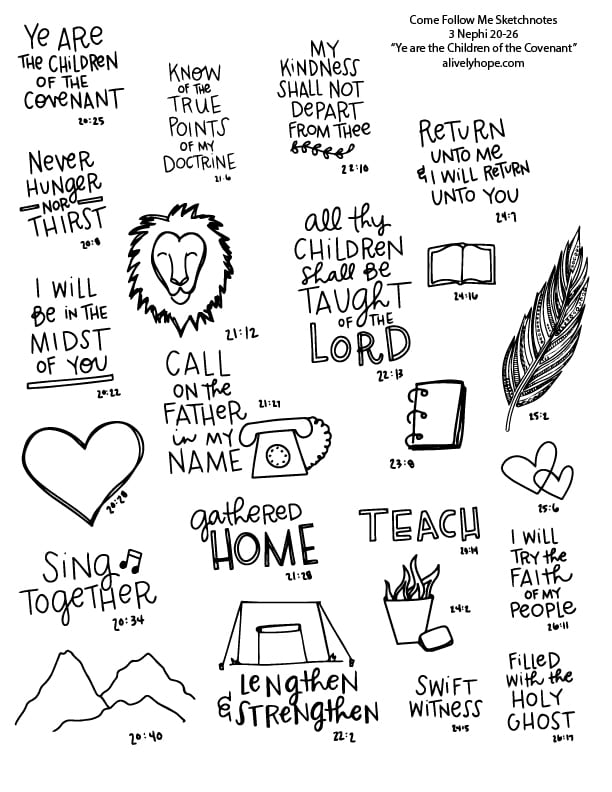 Come Follow Me Sketchnotes
3 Nephi 20-26
"Ye are the Children of the Covenant"
alivelyhope.com
Ye ARe
THE CHiLDREN
OF THE
CoveNANT
20:25
KNOW
OF THE
TRUE
POiNTS
OF MY
DOCTRiNE
21:6
MY
KiNDNESS
SHALL NOT
DePART
FROM THee
22:10
ReTURN
UNTO ME
& I WiLL ReTURN
UNTO YOU
24:7
NeveR
HUNgeR
NOR
THiRST
20:8
I WiLL
Be iN THE
MiDST
OF YOU
20:22
21:12
all thy
CHiLDREN
shall Be
TAUghT
OF THE
LORD
22:13
24:16
25:2
CALL
ON the
FATHeR
in MY
NAME
21:27
23:8
25:6
20:20
gathered
HOME
21:28
TEACH
20:14
SiNg
TOgeTHER
20:34
24:2
I WiLL
TRY the
FAiTH
OF MY
PEOPLE
26:11
20:40
LeNgtheN
& STReNgtheN
22:2
SWiFT
WiTNESS
24:5
FiLLeD
with the
HOLY
GHOST
26:17